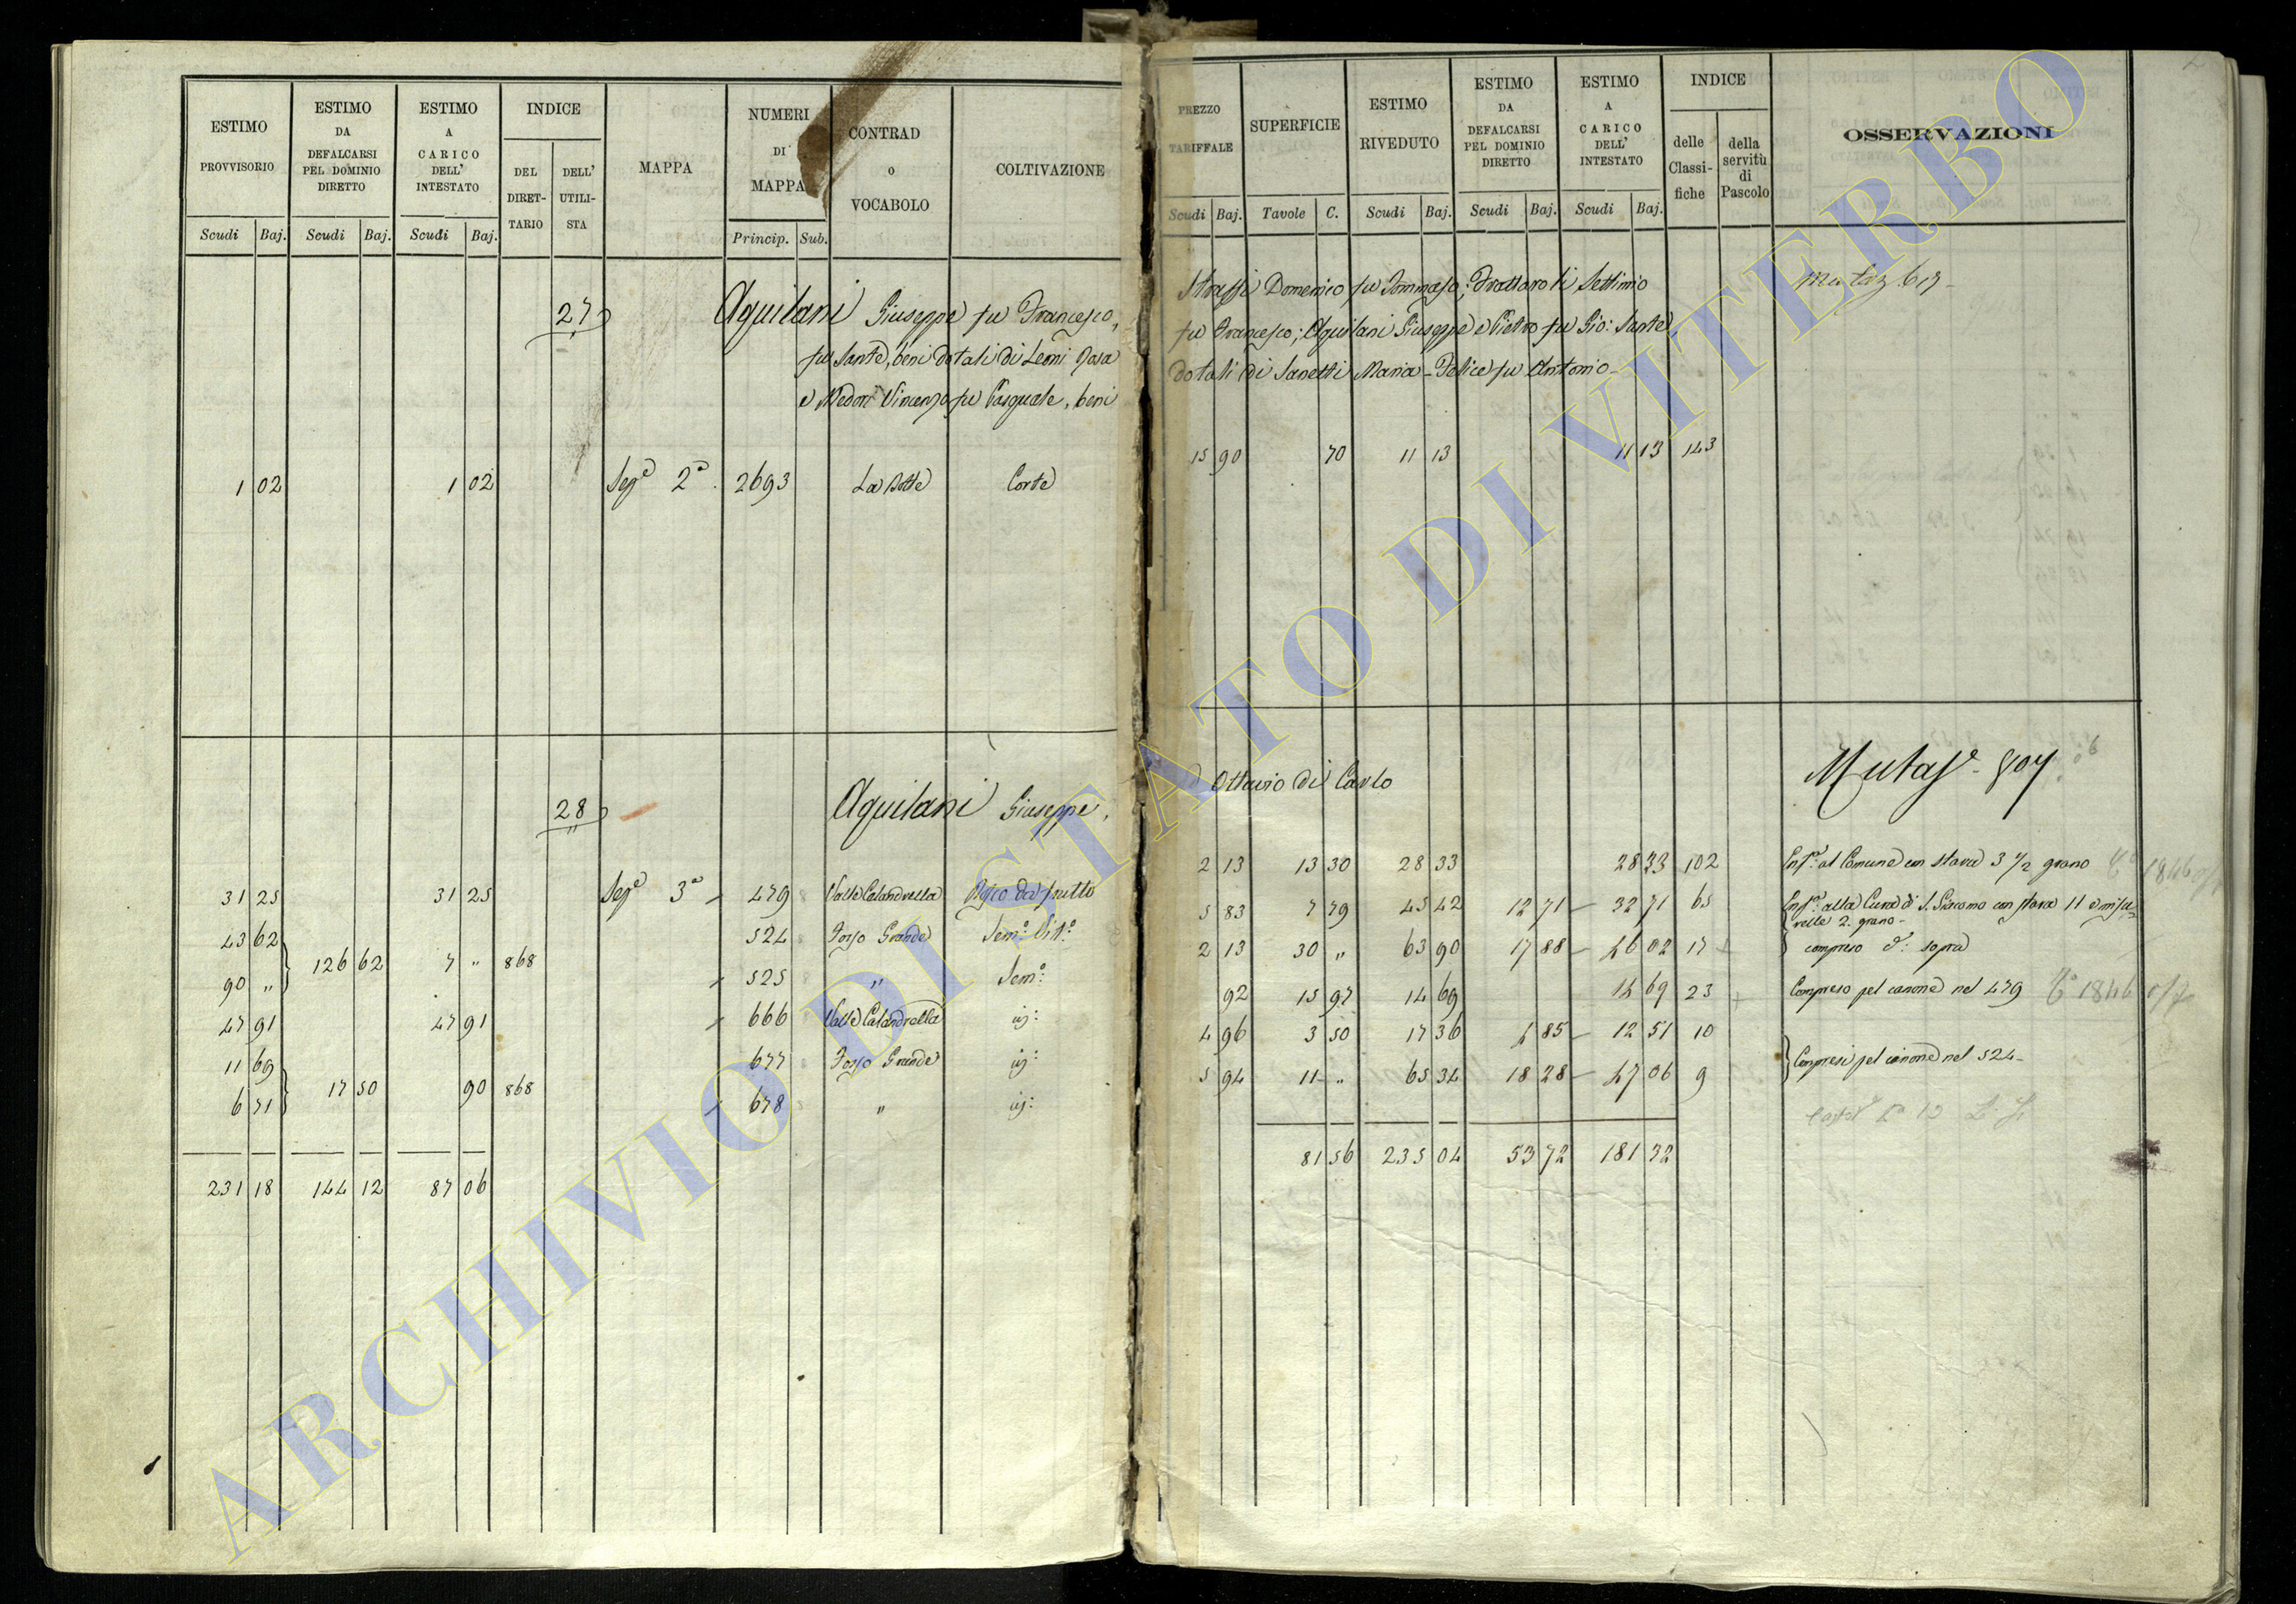 ESTIMO PROVVISORIO
ESTIMO DA DEFALCARSI PEL DOMINIO DIRETTO
ESTIMO A CARICO DELL' INTESTATO
INDICE
DEL DIRET-TARIO
DELL' UTILI-STA
MAPPA
NUMERI DI MAPPA
CONTRAD o VOCABOLO
COLTIVAZIONE
Scudi Baj. Scudi Baj. Scudi Baj. Princip. Sub.
27 Aquilani Giuseppe fu Francesco,
fu Sante, beni dotali di Leoni Rosa
e Medori Vincenzo fu Pasquale, beni
1 02 1 02 Segᵉ 2ᵃ 2693 La Botte Corte
28 Aquilani Giuseppe,
31 25 31 25 Segᵉ 3ᵃ 479 Valle Calandrella
43 62 524 Fosso Grande Semᵒ: Vitᵒ:
126 62 7 " 868
90 " 525 " Semᵒ:
47 91 47 91 666 Valle Calandrella
11 69 677 Fosso Grande
17 50 90 868
6 71 678 "
231 18 144 12 87 06
PREZZO TARIFFALE
SUPERFICIE
ESTIMO RIVEDUTO
ESTIMO DA DEFALCARSI PEL DOMINIO DIRETTO
ESTIMO A CARICO DELL' INTESTATO
INDICE
delle Classi-fiche
della servitù di Pascolo
OSSERVAZIONI
Scudi Baj. Tavole C. Scudi Baj. Scudi Baj. Scudi Baj.
Domenico fu Tommaso; Frattaroli Settimio
fu Francesco; Aquilani Giuseppe e Pietro fu Gio: Sante,
dotali di Sanetti Maria-Felice fu Antonio
15 90 70 11 13 11 13 143
Ottavio di Carlo
2 13 13 30 28 33 28 33 102 Enfᵃ: al Comune con stara 3 1/2 grano
5 83 7 79 45 42 12 71 32 71 65 Enfᵃ: alla Cura di S. Giacomo con stara 11 e misu-
relle 2. grano
2 13 30 " 63 90 17 88 46 02 17 compreso cᵉ: sopra
92 15 97 14 69 14 69 23 Compreso pel canone nel 479
4 96 3 50 17 36 4 85 12 51 10
Compresi pel canone nel 524
5 94 11 " 65 34 18 28 47 06 9
81 56 235 04 53 72 181 32
ARCHIVIO DI STATO DI VITERBO